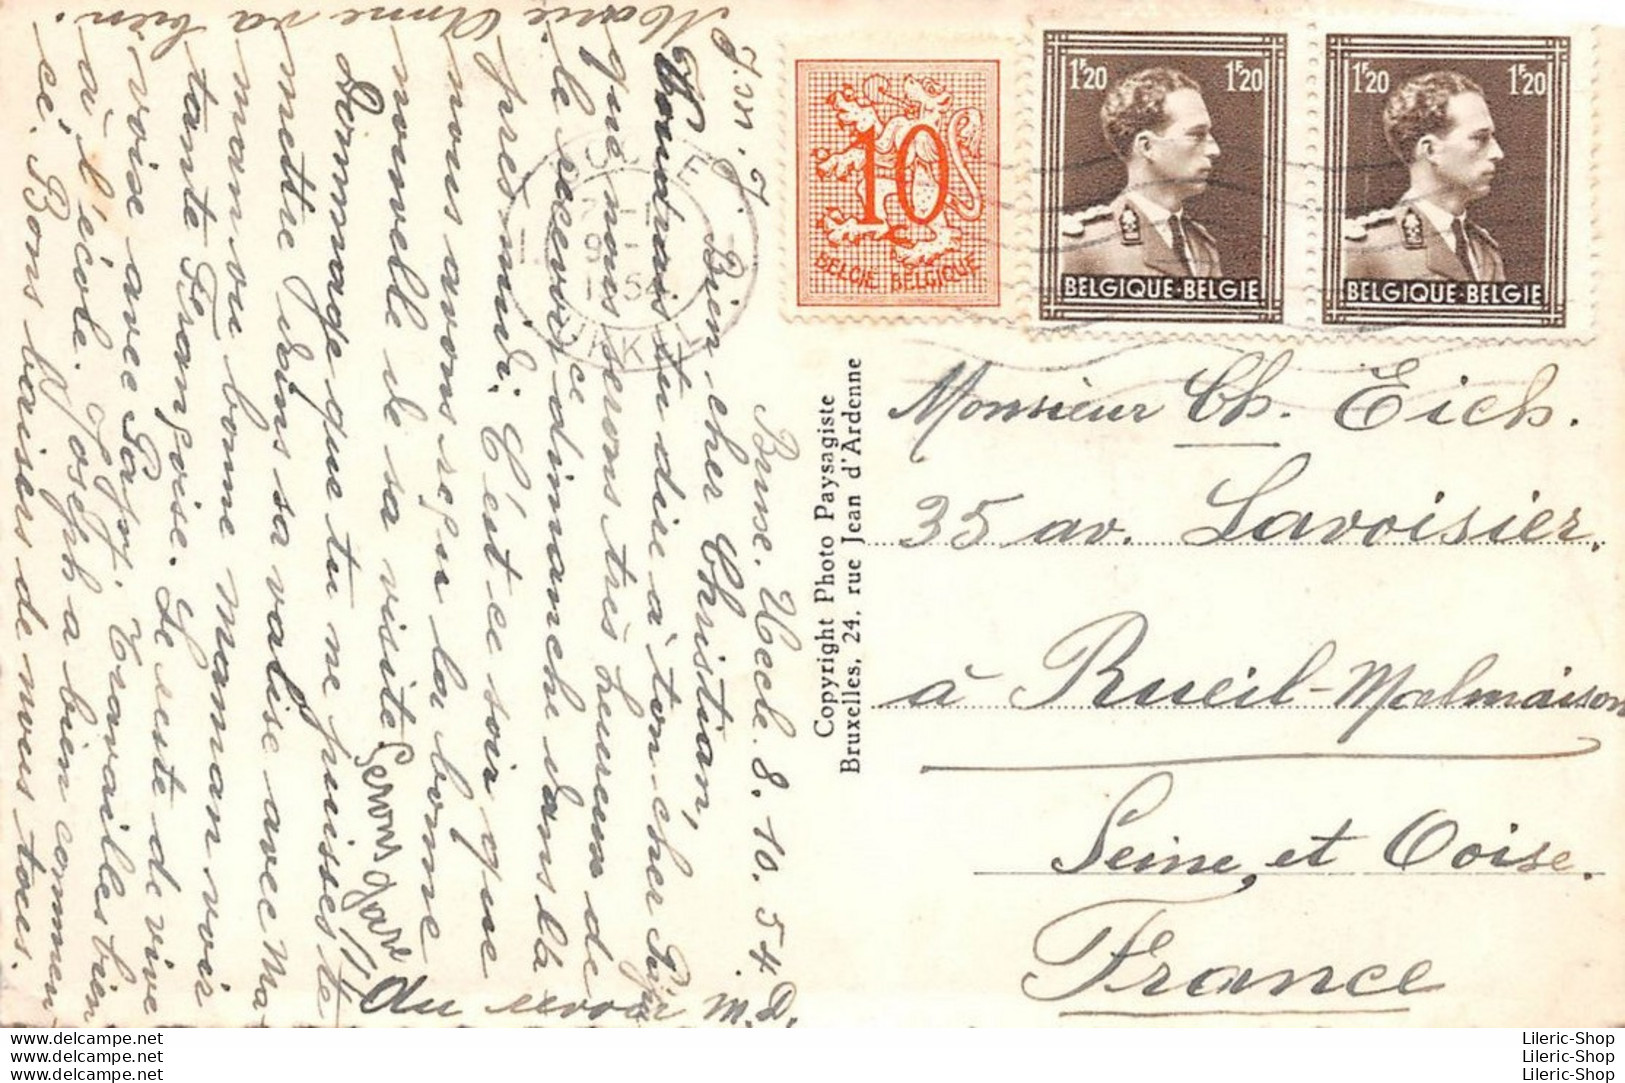 J. M. J.
Brux. Uccle. 8. 10. 54.
Bien cher Christian,
Voudrais tu dire à ton cher Papi
que nous serons très heureux de
le recevoir dimanche dans l'a
près midi. C'est ce soir que
nous avons reçu la bonne
nouvelle de sa visite. Serons gare
Dommage que tu ne puisses te
mettre dans sa valise avec Ma
man ou bonne maman voir
tante Françoise. Je reste de vive
voix avec Papi. Travailles bien
à l'école. Joseph a bien commen
cé. Bons baisers de nous tous.
Marie Anne va bien.
au revoir M.D.
10
BELGIE BELGIQUE
1F20 1F20
BELGIQUE-BELGIE
1F20 1F20
BELGIQUE-BELGIE
UCCLE
UKKEL
Copyright Photo Paysagiste
Bruxelles, 24, rue Jean d'Ardenne
Monsieur Ch. Eich.
35 av. Lavoisier.
à Rueil-Malmaison
Seine et Oise.
France
www.delcampe.net
www.delcampe.net
www.delcampe.net
Lileric-Shop
Lileric-Shop
Lileric-Shop